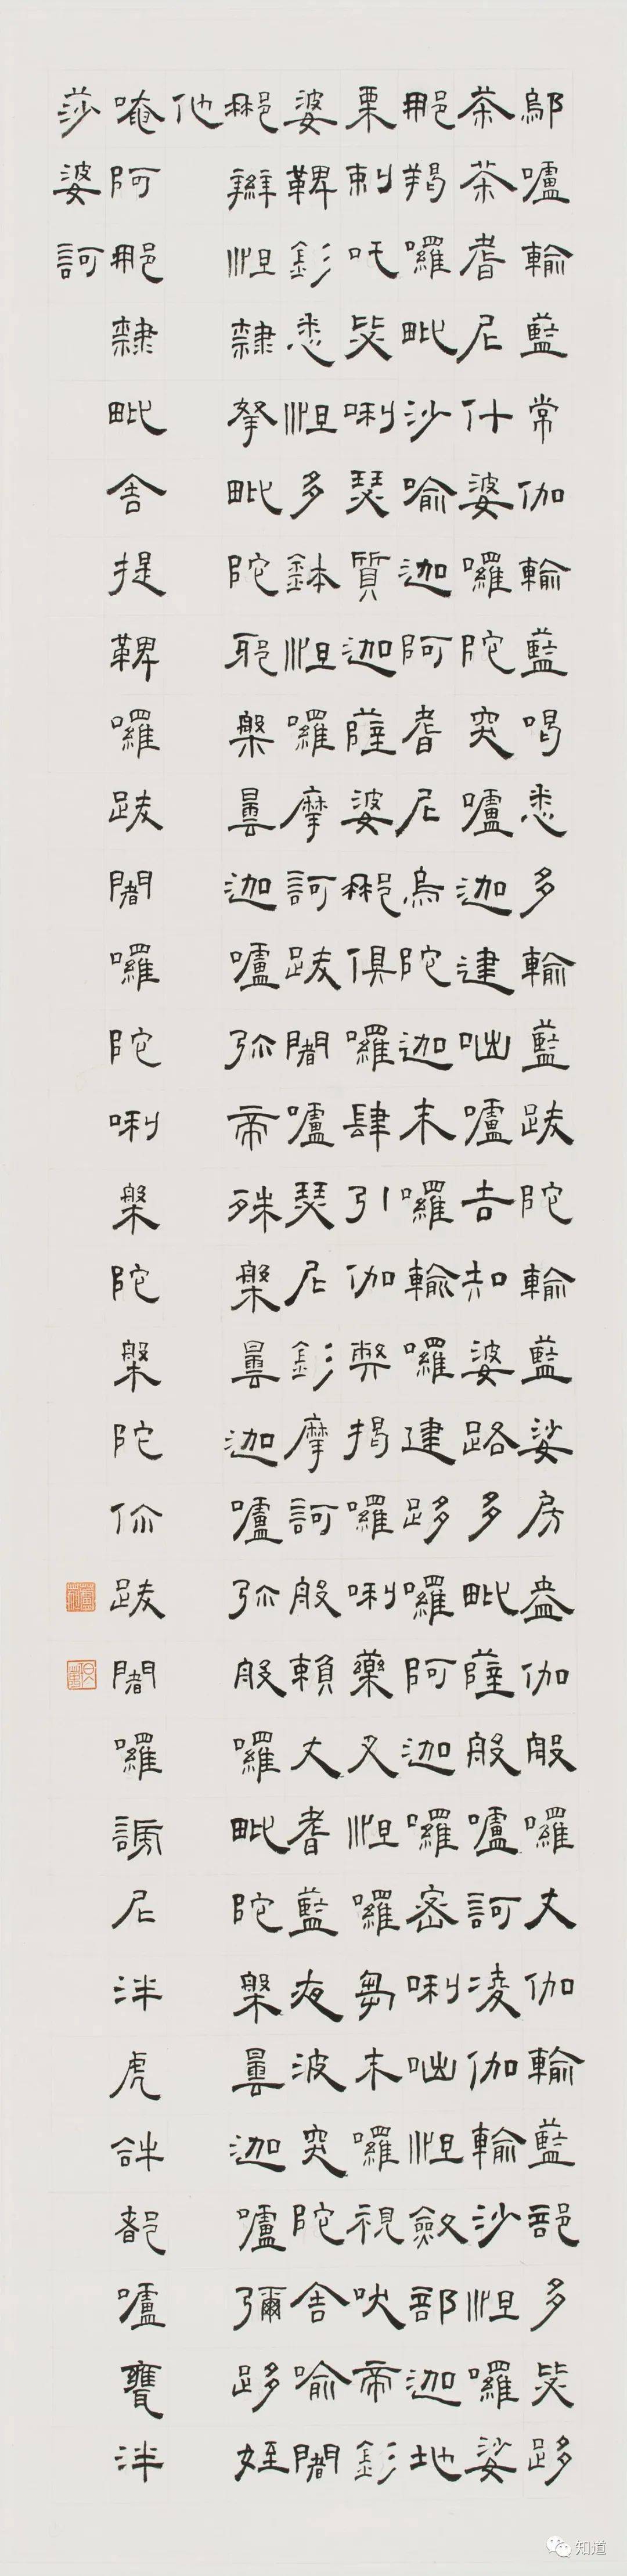 鄔嚧輸藍常伽輸藍喝悉多輸藍跋陀輸藍娑房盎伽般囉丈伽輸藍部多毖跢
茶茶耆尼什婆囉陀突嚧迦建咄嚧吉知婆路多毗薩般嚧訶凌伽輸沙怛囉娑
那羯囉毗沙喻迦阿耆尼烏陀迦末囉輸囉建跢囉阿迦囉密唎咄怛斂部迦地
栗剌吒毖唎瑟質迦薩婆那俱囉肆引伽弊揭囉唎藥叉怛囉芻末囉視吠帝釤
娑鞞釤悉怛多鉢怛囉摩訶跋闍嚧瑟尼釤摩訶般賴丈耆藍夜波突陀舍喻闍
那辮怛隸拏毗陀耶槃曇迦嚧弥帝殊槃曇迦嚧弥般囉毗陀槃曇迦嚧彌跢姪
他
唵阿那隸毗舍提鞞囉跋闍囉陀唎槃陀槃陀你跋闍囉謗尼泮虎𤙖都嚧甕泮
莎婆訶
知道